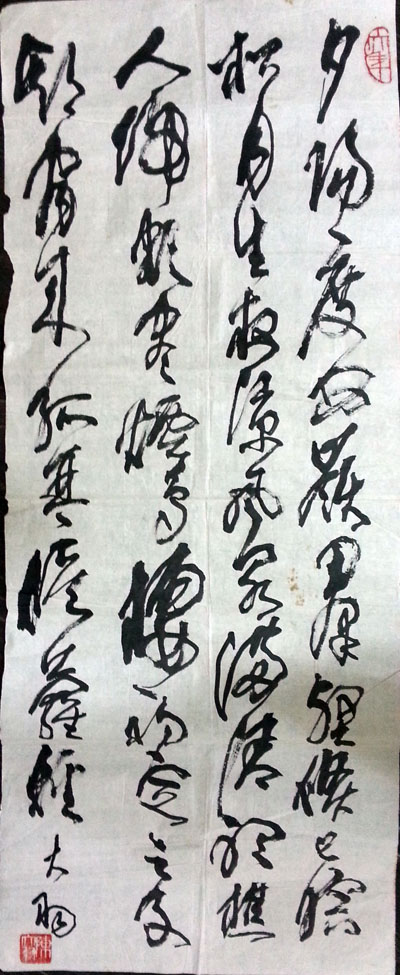 夕陽度西嶺群壑倏已暝
松月生夜涼風泉滿清聽樵
人歸欲盡煙鳥棲初定之子
期宿來孤琴候蘿徑 大羽